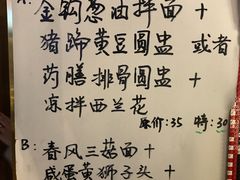 金鈎葱油拌面 +
猪蹄黄豆圆盅 或者
药膳排骨圆盅 +
凉拌西兰花
原价:35 特:30
B: 春风三菇面 +
咸蛋黄狮子头 +